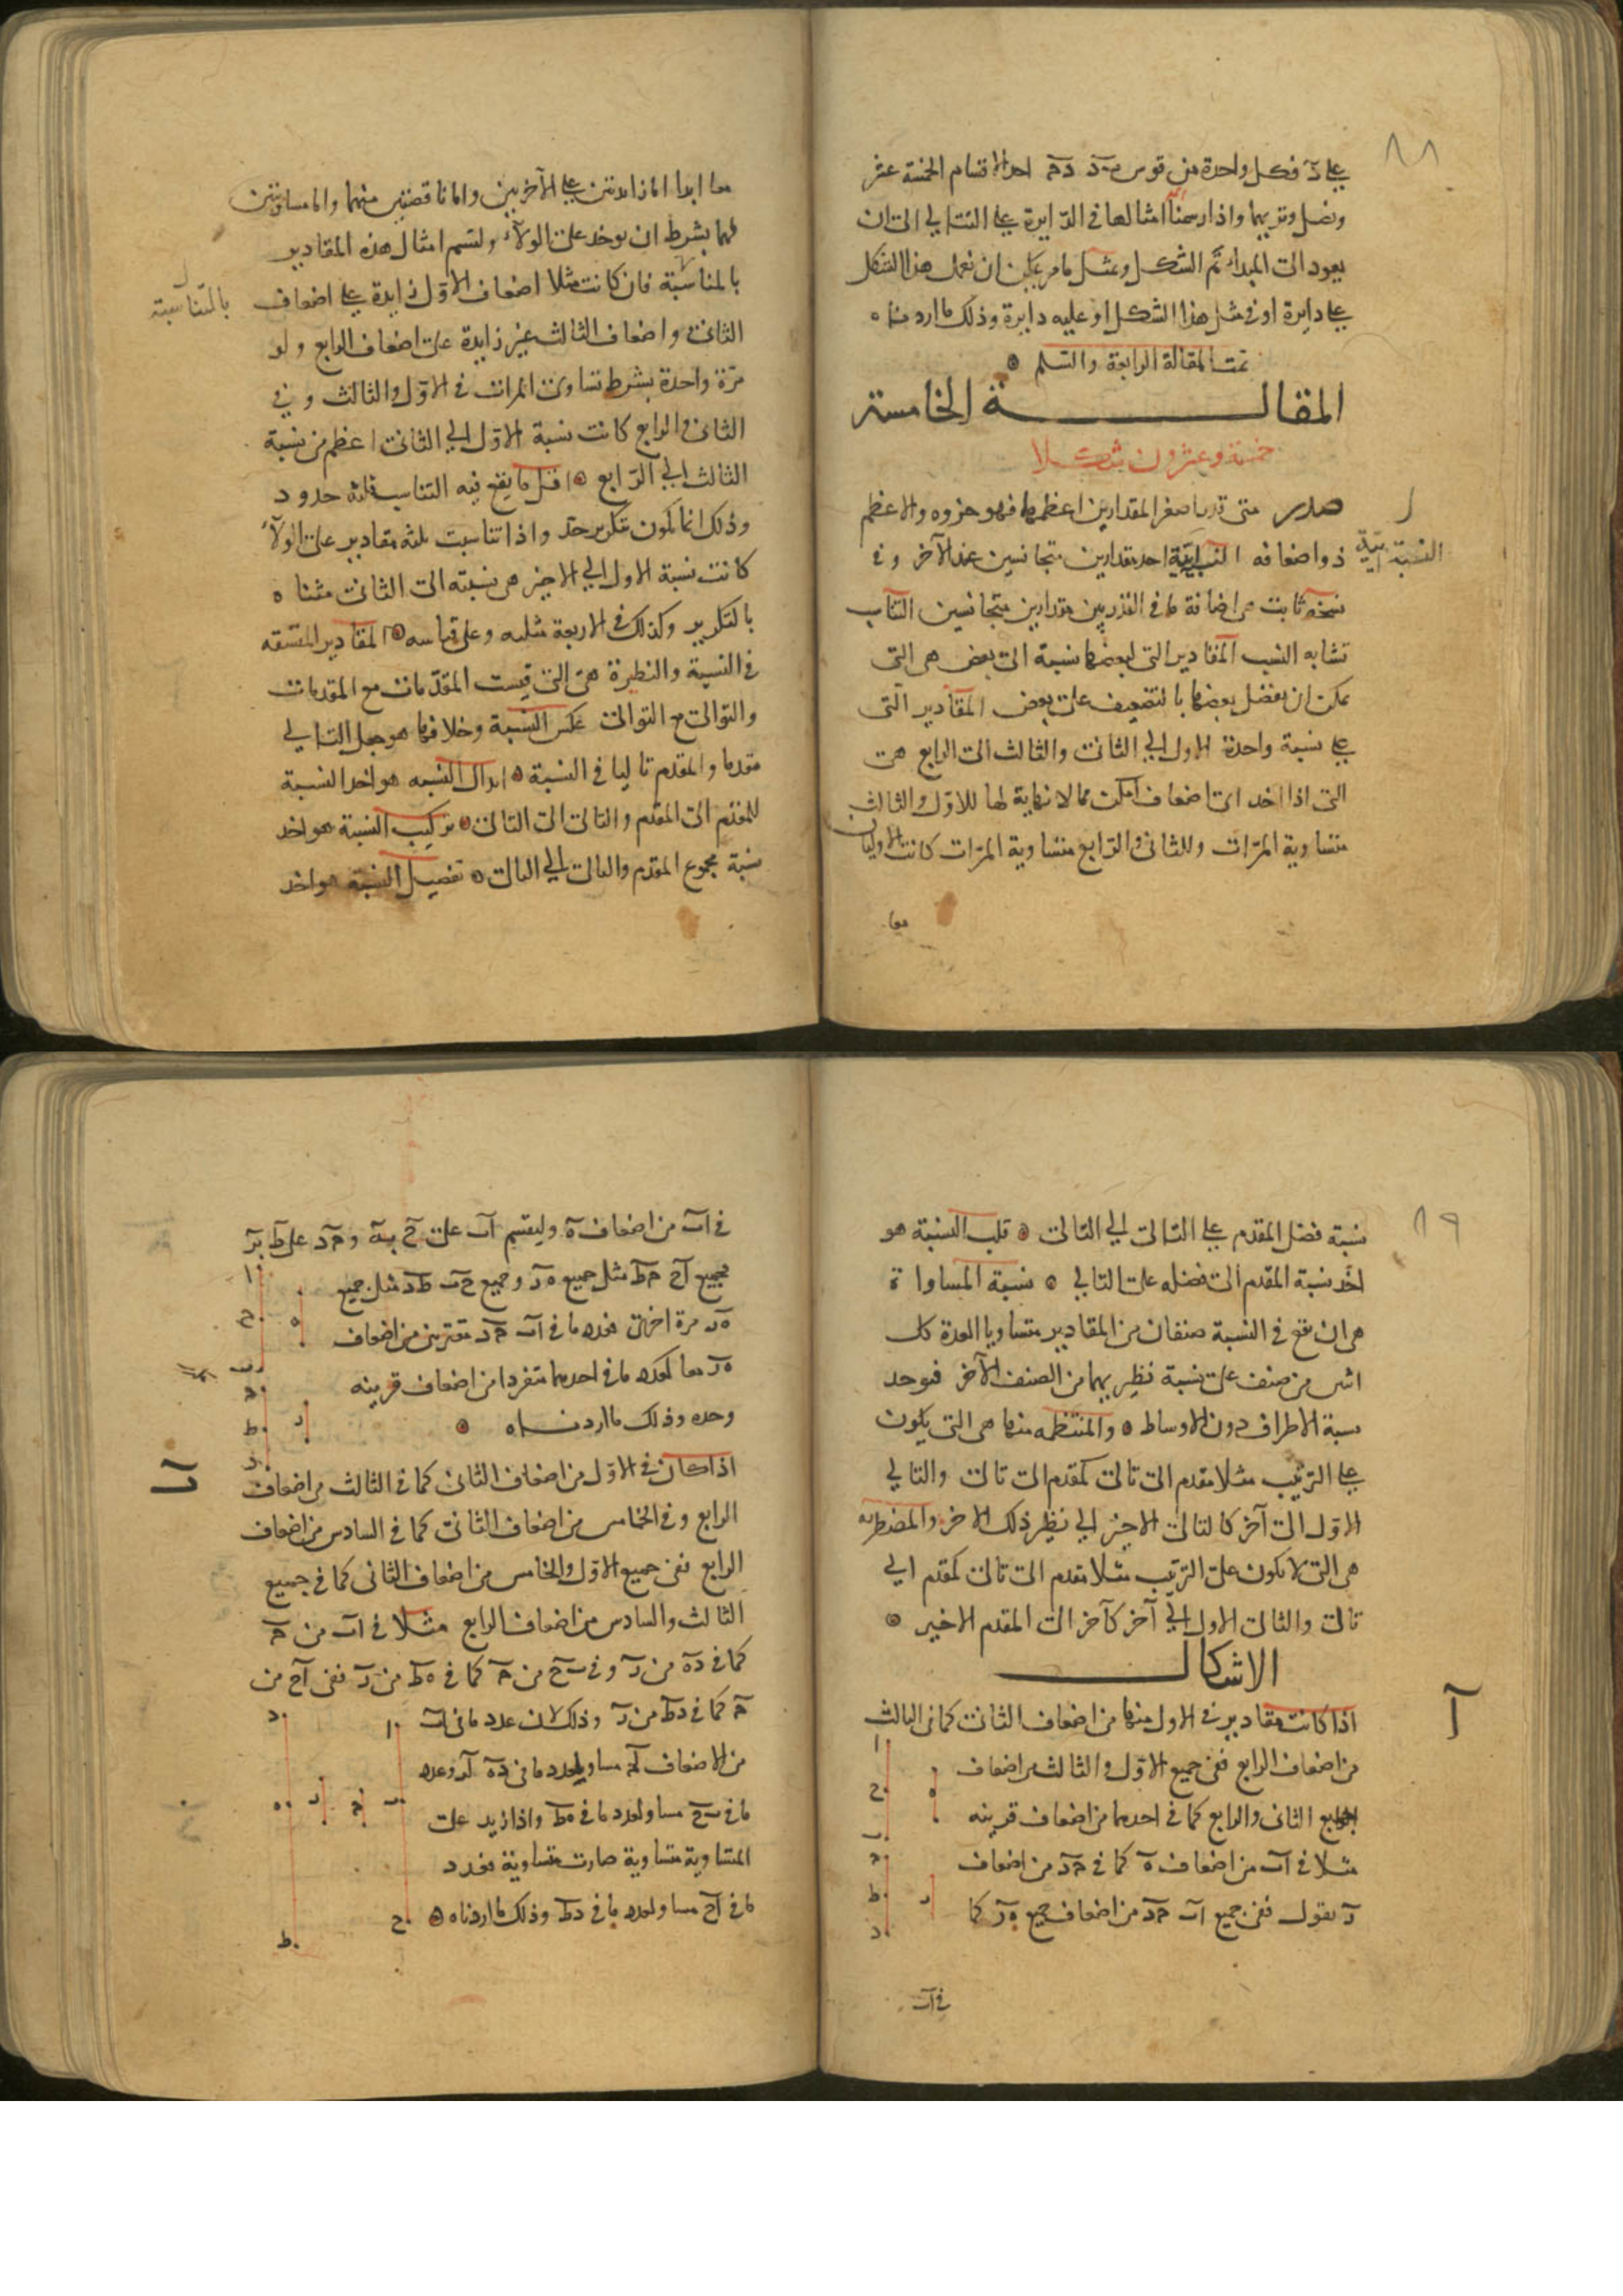 ٨٨
على د فكل واحدة من قوس ب د د ه احدا قسام الخمسة عشر
ونصل وتريهما واذا رسمنا امثالها في الدايرة على التتالي الى ان
يعود الى المبداء تم الشكل وبمثل ما مر يمكن ان نعمل هذا الشكل
على دايرة او في مثل هذا الشكل او عليه دايرة وذلك ما اردناه
تمت المقالة الرابعة والسلم
المقالة الخامسة
خمسة وعشرون شكلا
صدر متى قدر اصغر المقدارين اعظمهما فهو جزوه والاعظم
ذو اضعافه النسبة ايية احد مقدارين متجانسين عند الآخر وفي
النسبة ايية
نسخه ثابت هي اضافة ما في القدر بين مقدارين متجانسين التناسب
تشابه النسب المقادير التي لبعضها نسبة الى بعض هي التي
يمكن ان يفضل بعضها بالتضعيف على بعض المقادير التي
على نسبة واحدة الاول الى الثاني والثالث الى الرابع هي
التي اذا اخد اى اضعاف امكن مما لا نهاية لها للاول والثالث
متساوية المرات وللثاني والرابع متساوية المرات كانت الاوليان
معا
معا ابدا اما زايدتين على الآخريين واما ناقصتين منهما واما مساويتين
لهما بشرط ان يوخد على الولآء ولنسم امثال هذه المقادير
بالمناسبة فان كانت مثلا اضعاف الاول زايدة على اضعاف
بالمتناسبة
الثاني واضعاف الثالث غير زايدة على اضعاف الرابع ولو
مرة واحدة بشرط تساوى المرات في الاول والثالث وفي
الثاني والرابع كانت نسبة الاول الي الثاني اعظم من نسبة
الثالث الي الرابع اقل ما يقع فيه التناسب ثلثه حدود
وذلك انما يكون بتكرير حد واذا تناسبت ثلثه مقادير على الولآء
كانت نسبة الاول الي الاخير هي نسبته الى الثاني مثناه
بالتكرير وكذلك في الاربعة مثلثه وعلى قياسه المقادير المتفقه
في النسبة والنظيرة هي التي قيست المقدمات مع المقدمات
والتوالى مع التوالى عكس النسبة وخلافها هو جعل التالي
مقدما والمقدم تاليا في النسبة ابدال النسبه هو اخد النسبة
للمقدم الى المقدم والتالى الى التالى تركيب النسبة هو اخد
نسبة مجموع المقدم والتالى الي التالى تفصيل النسبة هو اخد
٨٩
نسبة فضل المقدم على التالى الي التالى قلب النسبة هو
اخد نسبة المقدم الى فضله على التالي نسبة المساواة
هى ان يقع في النسبة صنفان من المقادير متساويا العدة كل
اثنين من صنف على نسبة نظيريهما من الصنف الآخر فيوخد
نسبة الاطراف دون الاوساط والمنتظمه منها هى التى يكون
على الترتيب مثلا مقدم الى تالى كمقدم الى تالى والتالي
الاول الى آخر كالتالى الاخير الي نظير ذلك الاخر والمضطربه
هى التى لا يكون على الترتيب مثلا مقدم الى تالى كمقدم الي
تالى والتالى الاول الي آخر كآخر الى المقدم الاخير
الاشكال
آ
اذا كانت مقادير في الاول منها من اضعاف الثاني كما في الثالث
من اضعاف الرابع ففى جميع الاول والثالث من اضعاف
جميع الثاني والرابع كما في احدهما من اضعاف قرينه
مثلا في اب من اضعاف ه كما في ح د من اضعاف
ر نقول ففى جميع اب ح د من اضعاف جميع ه ر كما
ا
ح
ب
ه
ح
ط
د
ر
في اب
في اب من اضعاف ه وليقسم اب على ح به و ح د على ط بر
فجميع اح ح ط مثل جميع ه ر وجميع ح ب ط د مثل جميع
ه ر مرة اخرى فعده ما في اب ح د مقترنين من اضعاف
ه ر معا كعده ما في احدهما منفردا من اضعاف قرينه
وحده وذلك ما اردناه
ا
ح
ب
ه
ح
ط
د
ر
ب
اذا كان في الاول من اضعاف الثاني كما في الثالث من اضعاف
الرابع وفي الخامس من اضعاف الثاني كما في السادس من اضعاف
الرابع ففى جميع الاول والخامس من اضعاف الثاني كما في جميع
الثالث والسادس من اضعاف الرابع مثلا في اب من ح
كما في ده من ر وفي ب ح من ح كما في ه ط من ر ففى اح من
ح كما في د ط من ر وذلك لان عدد ما في اب
من الاضعاف مساو لعدد ما في ده وعده
ما في ب ح مساو لعدد ما في ه ط واذا زيد على
المتساوية متساوية صارت متساوية فعدد
ما في اح مساو لعدد ما في د ط وذلك ما اردناه
د
ه
ط
ر
ح
ا
ب
ح